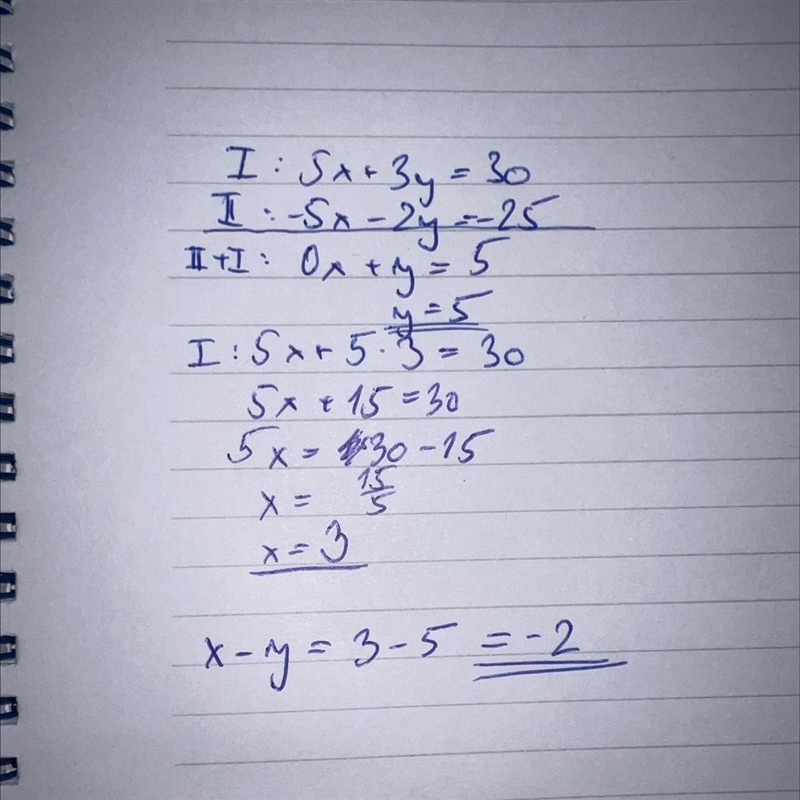 I : 5x + 3y = 30
II : -5x - 2y = -25
II+I : 0x + y = 5
y = 5
I : 5x + 5 · 3 = 30
5x + 15 = 30
5x = 30 - 15
x = 15/5
x = 3
x - y = 3 - 5 = -2